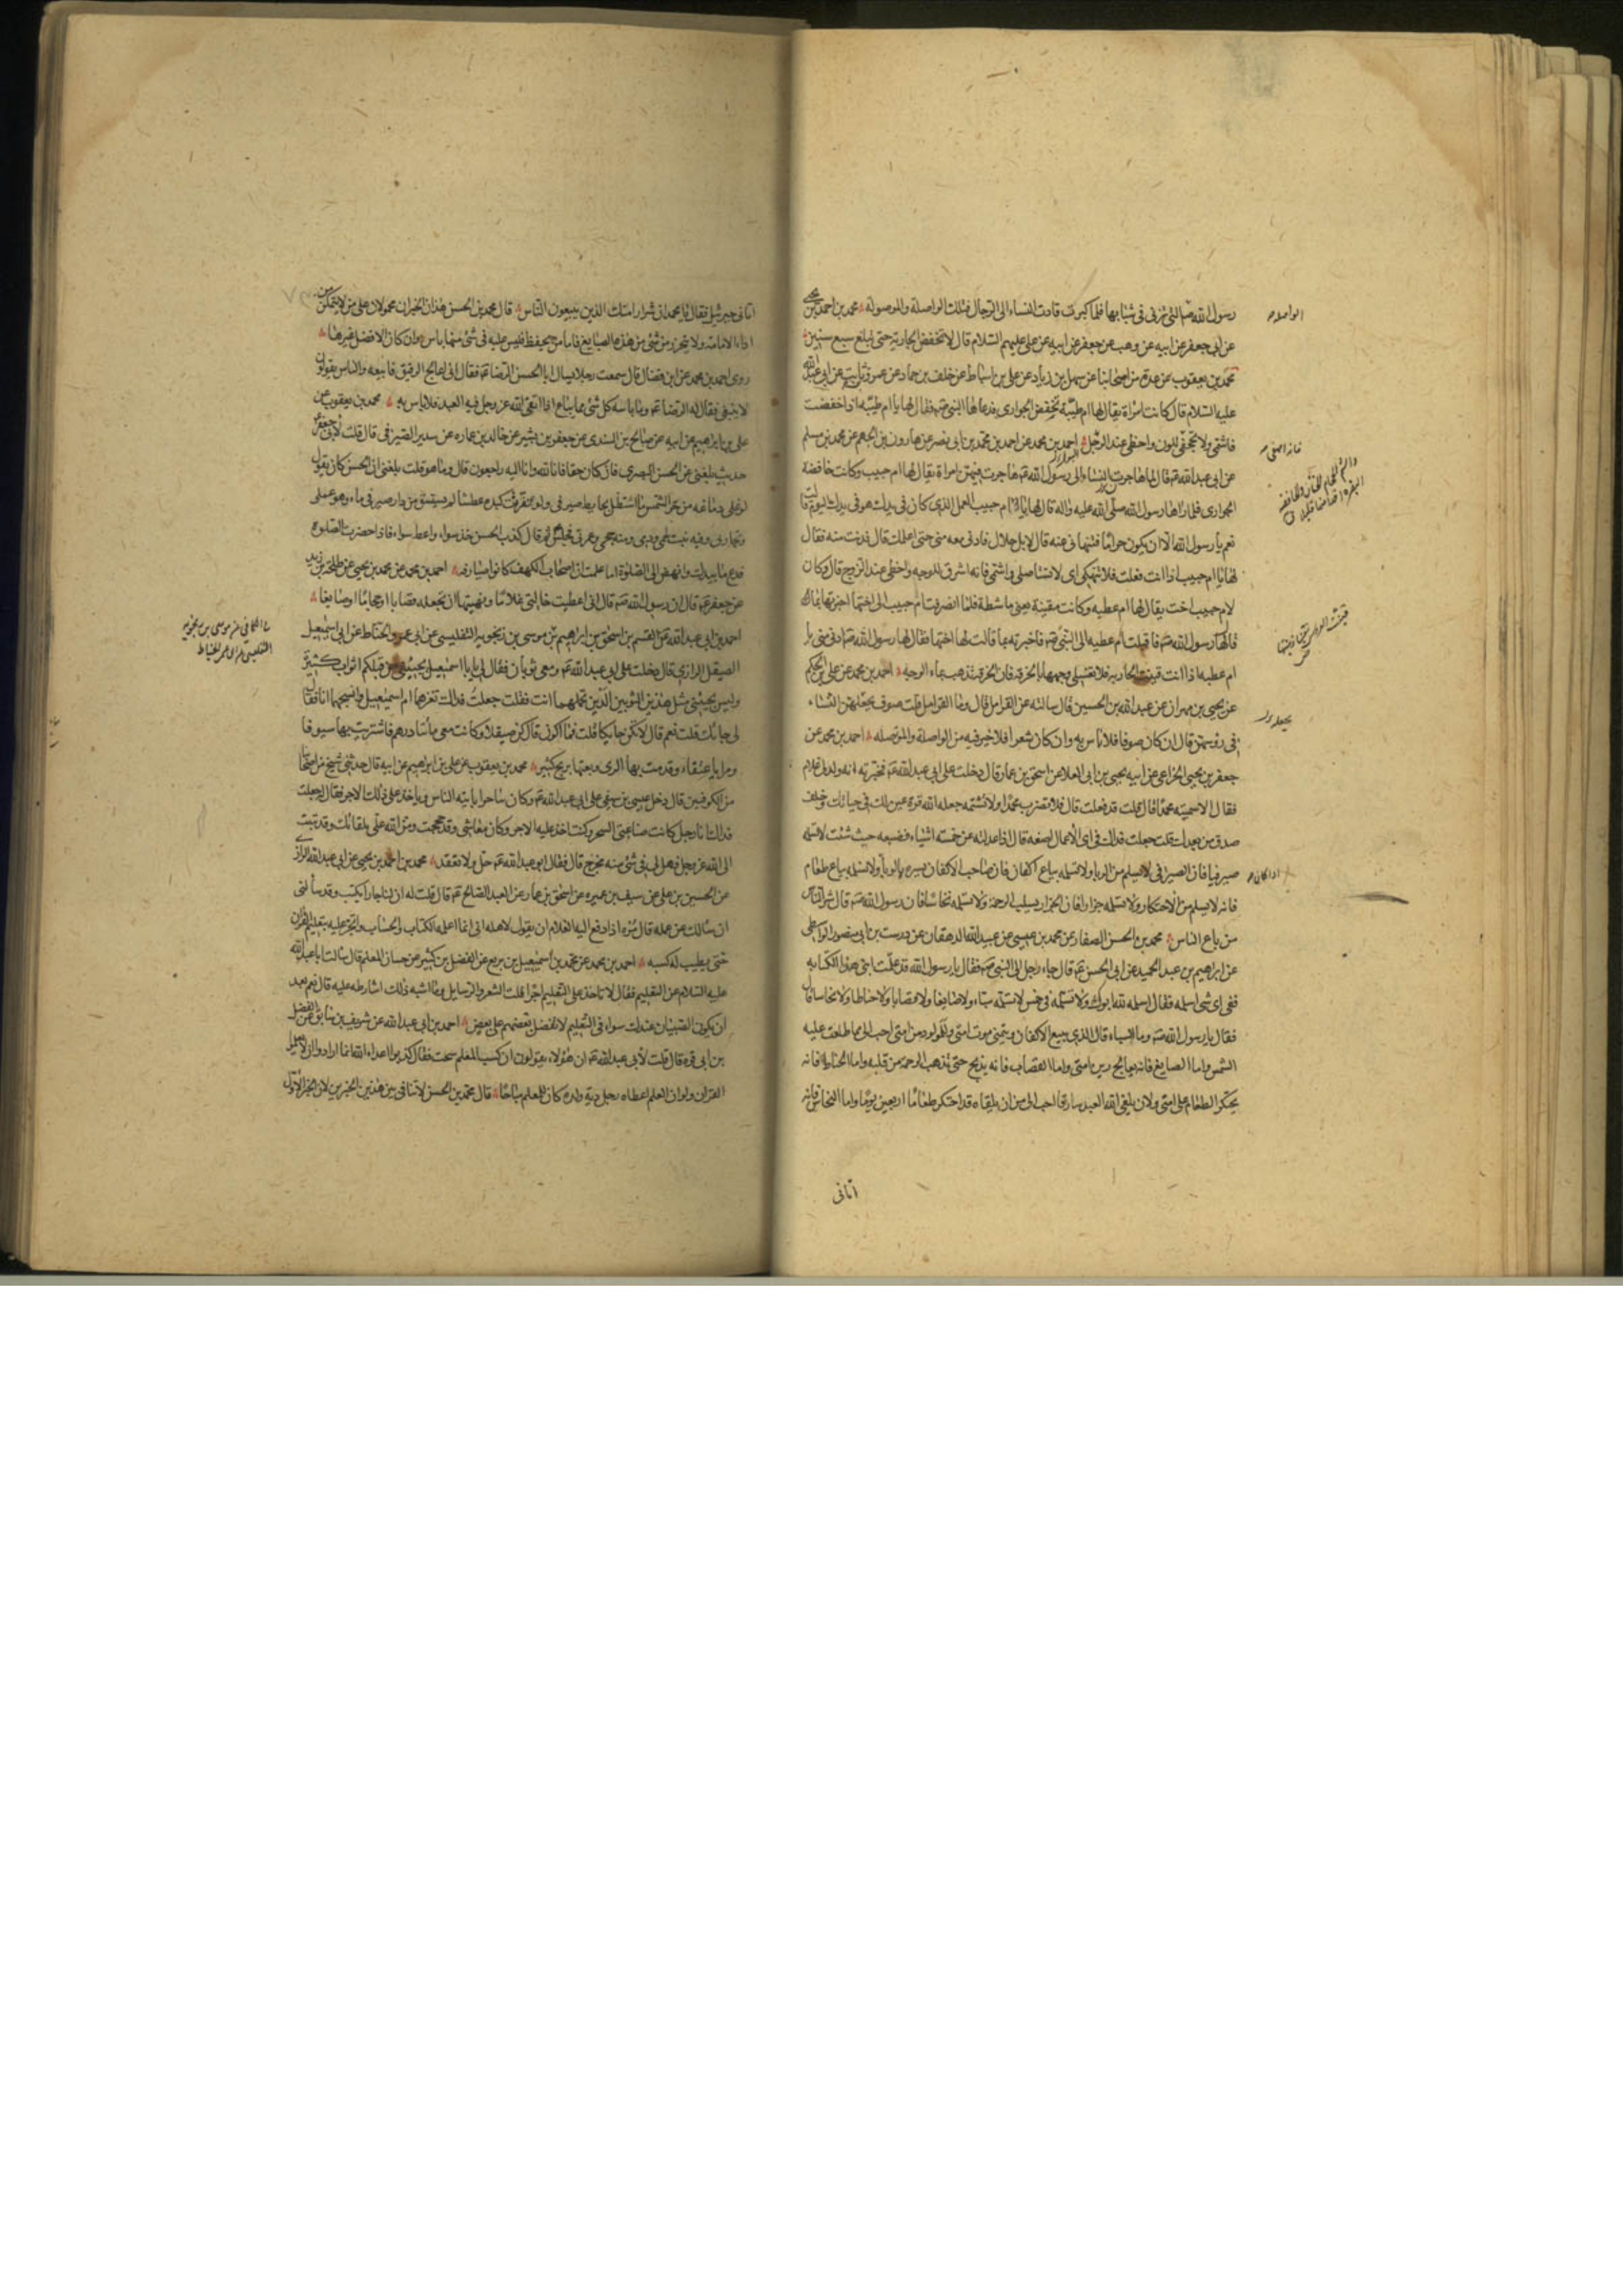 رسول الله صه التي تزني في شبابها فلما كبرت قادت النساء الى الرجال فتلك الواصلة والموصولة محمد بن احمد بن يحيى
عن ابي جعفر عن ابيه عن وهب عن جعفر عن ابيه عن علي عليهم السلام قال لا تخفض الجارية حتى تبلغ سبع سنين
محمد بن يعقوب عن عدة من اصحابنا عن سهل بن زياد عن علي بن اسباط عن خلف بن حماد عن عمرو بن ثابت عن ابي عبد الله
عليه السلام قال كانت امراة يقال لها ام طيبة تخفض الجواري فدعاها النبي صه فقال لها يا ام طيبة اذا خفضت
فاشمي ولا تجحفي للون واحظى عند الرجل احمد بن محمد عن احمد بن محمد بن ابي نصر عن هارون بن الجهم عن محمد بن مسلم
عن ابي عبد الله عه قال لما هاجرت النساء الى رسول الله صه هاجرت فيهن امراة يقال لها ام حبيب وكانت خافضة
الجواري فلما راها رسول الله صلى الله عليه واله قال لها يا ام حبيب العمل الذي كان في يدك هو في يدك اليوم قالت
نعم يا رسول الله الا ان يكون حراما فتنهاني عنه قال لا بل حلال فادني مني حتى اعلمك قال فدنت منه فقال
لها يا ام حبيب اذا انت فعلت فلا تنهكي اى لا تستاصلي واشمي فانه اشرق للوجه واحظى عند الزوج قال وكان
لام حبيب اخت يقال لها ام عطية وكانت مقينة يعني ماشطة فلما انصرفت ام حبيب الى اختها اخبرتها بما
قال لها رسول الله صه فاقبلت ام عطيه الى النبي صه فاخبرته بما قالت لها اختها فقال لها رسول الله صه ادني مني يا
ام عطيه اذا انت قينت الجارية فلا تغسلي وجهها بالخرقة فان الخرقة تذهب بماء الوجه احمد بن محمد عن علي بن الحكم
عن يحيى بن مهران عن عبد الله بن الحسين قال سالته عن القرامل قال وما القرامل قلت صوف يجعلنه النساء
في رؤسهن قال ان كان صوفا فلا باس به وان كان شعرا فلا خير فيه من الواصلة والموصله احمد بن محمد عن
جعفر بن يحيى الخزاعي عن ابيه يحيى بن ابي العلا عن اسحق بن عمار قال دخلت على ابي عبد الله عه فخبرته انه ولد لي غلام
فقال الا سميته محمدا قال قلت قد فعلت قال فلا تضرب محمدا ولا تشتمه جعله الله قرة عين لك في حياتك وخلف
صدق من بعدك قلت جعلت فداك في اى الاعمال اضعه قال اذا عدلته عن خمسة اشياء فضعه حيث شئت لا تسلمه
صيرفيا فان الصيرفي لا يسلم من الربا ولا تسلمه بياع اكفان فان صاحب الاكفان يسره الوبا ولا تسلمه بياع طعام
فانه لا يسلم من الاحتكار ولا تسلمه جزارا فان الجزار يسلب الرحمة ولا تسلمه نخاسا فان رسول الله صه قال شر الناس
من باع الناس محمد بن الحسن الصفار عن محمد بن عيسى عن عبيد الله الدهقان عن درست بن ابي منصور الواسطي
عن ابراهيم بن عبد الحميد عن ابي الحسن عه قال جاء رجل الى النبي صه فقال يا رسول الله قد علمت ابني هذا الكتابة
ففي اى شى اسلمه فقال اسلمه لله ابوك ولا تسلمه في خمس لا تسلمه سياء ولا صايغا ولا قصابا ولا حناطا ولا نخاسا قال
فقال يا رسول الله صه وما السياء قال الذي يبيع الاكفان ويتمنى موت امتى وللمولود من امتى احب الى مما طلعت عليه
الشمس واما الصايغ فانه يعالج رين امتى واما القصاب فانه يذبح حتى تذهب الرحمة من قلبه واما الحناط فانه
يحتكر الطعام على امتى ولان يلقى الله العبد سارقا احب الى من ان يلقاه قد احتكر طعاما اربعين يوما واما النخاس فانه
اتاني
الواصله
يجعله
اتاني جبرئيل فقال يا محمد ان شرار امتك الذين يبيعون الناس قال محمد بن الحسن هذان الخبران محمولان على من لا يتمكن من
اداء الامانة ولا يتحرز من شئ من هذه الصنايع فاما من يحفظ فليس عليه في شئ منها باس وان كان الافضل غيرها
روى احمد بن محمد عن ابن فضال قال سمعت رجلا يسال ابا الحسن الرضا عه فقال اني اعالج الرقيق فابيعه والناس يقولون
لا ينبغي فقال له الرضا عه وما باسه كل شئ مما يباع اذا اتقى الله عز وجل فيه العبد فلا باس به محمد بن يعقوب عن
علي بن ابراهيم عن ابيه عن صالح بن السندي عن جعفر بن بشير عن خالد بن عماره عن سدير الصيرفي قال قلت لابي جعفر
حديث بلغني عن الحسن البصري فان كان حقا فانا لله وانا اليه راجعون قال وما هو قلت بلغني ان الحسن كان يقول
لو غلى دماغه من حر الشمس ما استظل بحايط صيرفي ولو تفرقت كبده عطشا لم يستسق من دار صيرفي ماء وهو عملي
وتجارتي وفيه نبت لحمي ودمي ومنه حجي وعمرتي فجلس ثم قال كذب الحسن خذ سواء واعط سواء فاذا حضرت الصلوة
فدع ما بيدك وانهض الى الصلوة اما علمت ان اصحاب الكهف كانوا صيارفه احمد بن محمد عن محمد بن يحيى عن طلحة بن زيد
عن جعفر عه قال ان رسول الله صه قال اني اعطيت خالتي غلاما ونهيتها ان تجعله قصابا او حجاما او صايغا
احمد بن ابي عبد الله عن القسم بن اسحق بن ابراهيم عن موسى بن زنجويه التفليسي عن ابي عمرو الحناط عن ابي اسمعيل
الصيقل الرازي قال دخلت على ابي عبد الله عه ومعي ثوبان فقال لي يا با اسمعيل يجيئني من قبلكم اثواب كثيرة
وليس يجيئني مثل هذين الثوبين الذين تحملهما انت فقلت جعلت فداك تغزلهما ام اسمعيل وانسجهما انا فقال
لي حائك قلت نعم قال لا تكن حايكا قلت فما اكون قال كن صيقلا وكانت معي مأتا درهم فاشتريت بها سيوفا
ومرايا عتقاء وقدمت بها الرى وبعتها بربح كثير محمد بن يعقوب عن علي بن ابراهيم عن ابيه قال حدثني شيخ من اصحابنا
من الكوفيين قال دخل عيسى بن سقفي على ابي عبد الله عه وكان ساحرا ياتيه الناس وياخذ على ذلك الاجر فقال له جعلت
فداك انا رجل كانت صناعتي السحر وكنت اخذ عليه الاجر وكان معاشي وقد حججت ومن الله علي بلقائك وقد تبت
الى الله عز وجل فهل لي في شئ منه مخرج قال فقال ابو عبد الله عه حل ولا تعقد محمد بن احمد بن يحيى عن ابي عبد الله الرازي
عن الحسين بن علي عن سيف بن عميره عن اسحق بن عمار عن العبد الصالح عه قال قلت له ان لنا جارا يكتب وقد سألني
ان سالك عن عمله قال مره اذا دفع اليه الغلام ان يقول لاهله اني انما اعلمه الكتاب والحساب واتجر عليه بتعليم القران
حتى يطيب له كسبه احمد بن محمد عن محمد بن اسمعيل بن بزيع عن الفضل بن كثير عن حسان المعلم قال سالت ابا عبد الله
عليه السلام عن التعليم فقال لا تاخذ على التعليم اجرا قلت الشعر والرسايل وما اشبه ذلك اشارطه عليه قال نعم بعد
ان يكون الصبيان عندك سواء في التعليم لا تفضل بعضهم على بعض احمد بن ابي عبد الله عن شريف بن سابق عن الفضل
بن ابي قرة قال قلت لأبي عبد الله عه ان هؤلاء يقولون ان كسب المعلم سحت فقال كذبوا اعداء الله انما ارادوا ان لا يعلموا
القران ولو ان المعلم اعطاه رجل دية ولده كان للمعلم مباحا قال محمد بن الحسن لا تنافي بين هذين الخبرين لان الخبر الاول
في الكافي عن موسى بن زنجويه
التفليسي عن ابي عمر الحناط